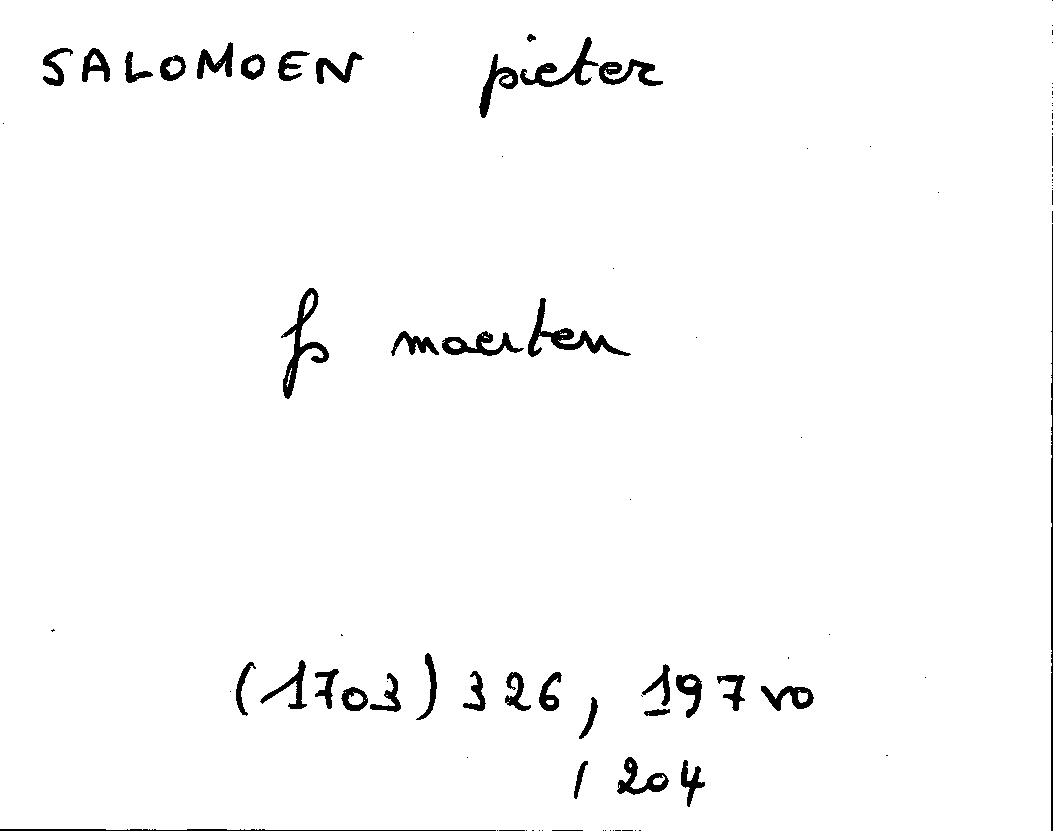 SALOMOEN pieter
fs maerten
(1703) 326, 197 vo
, 204